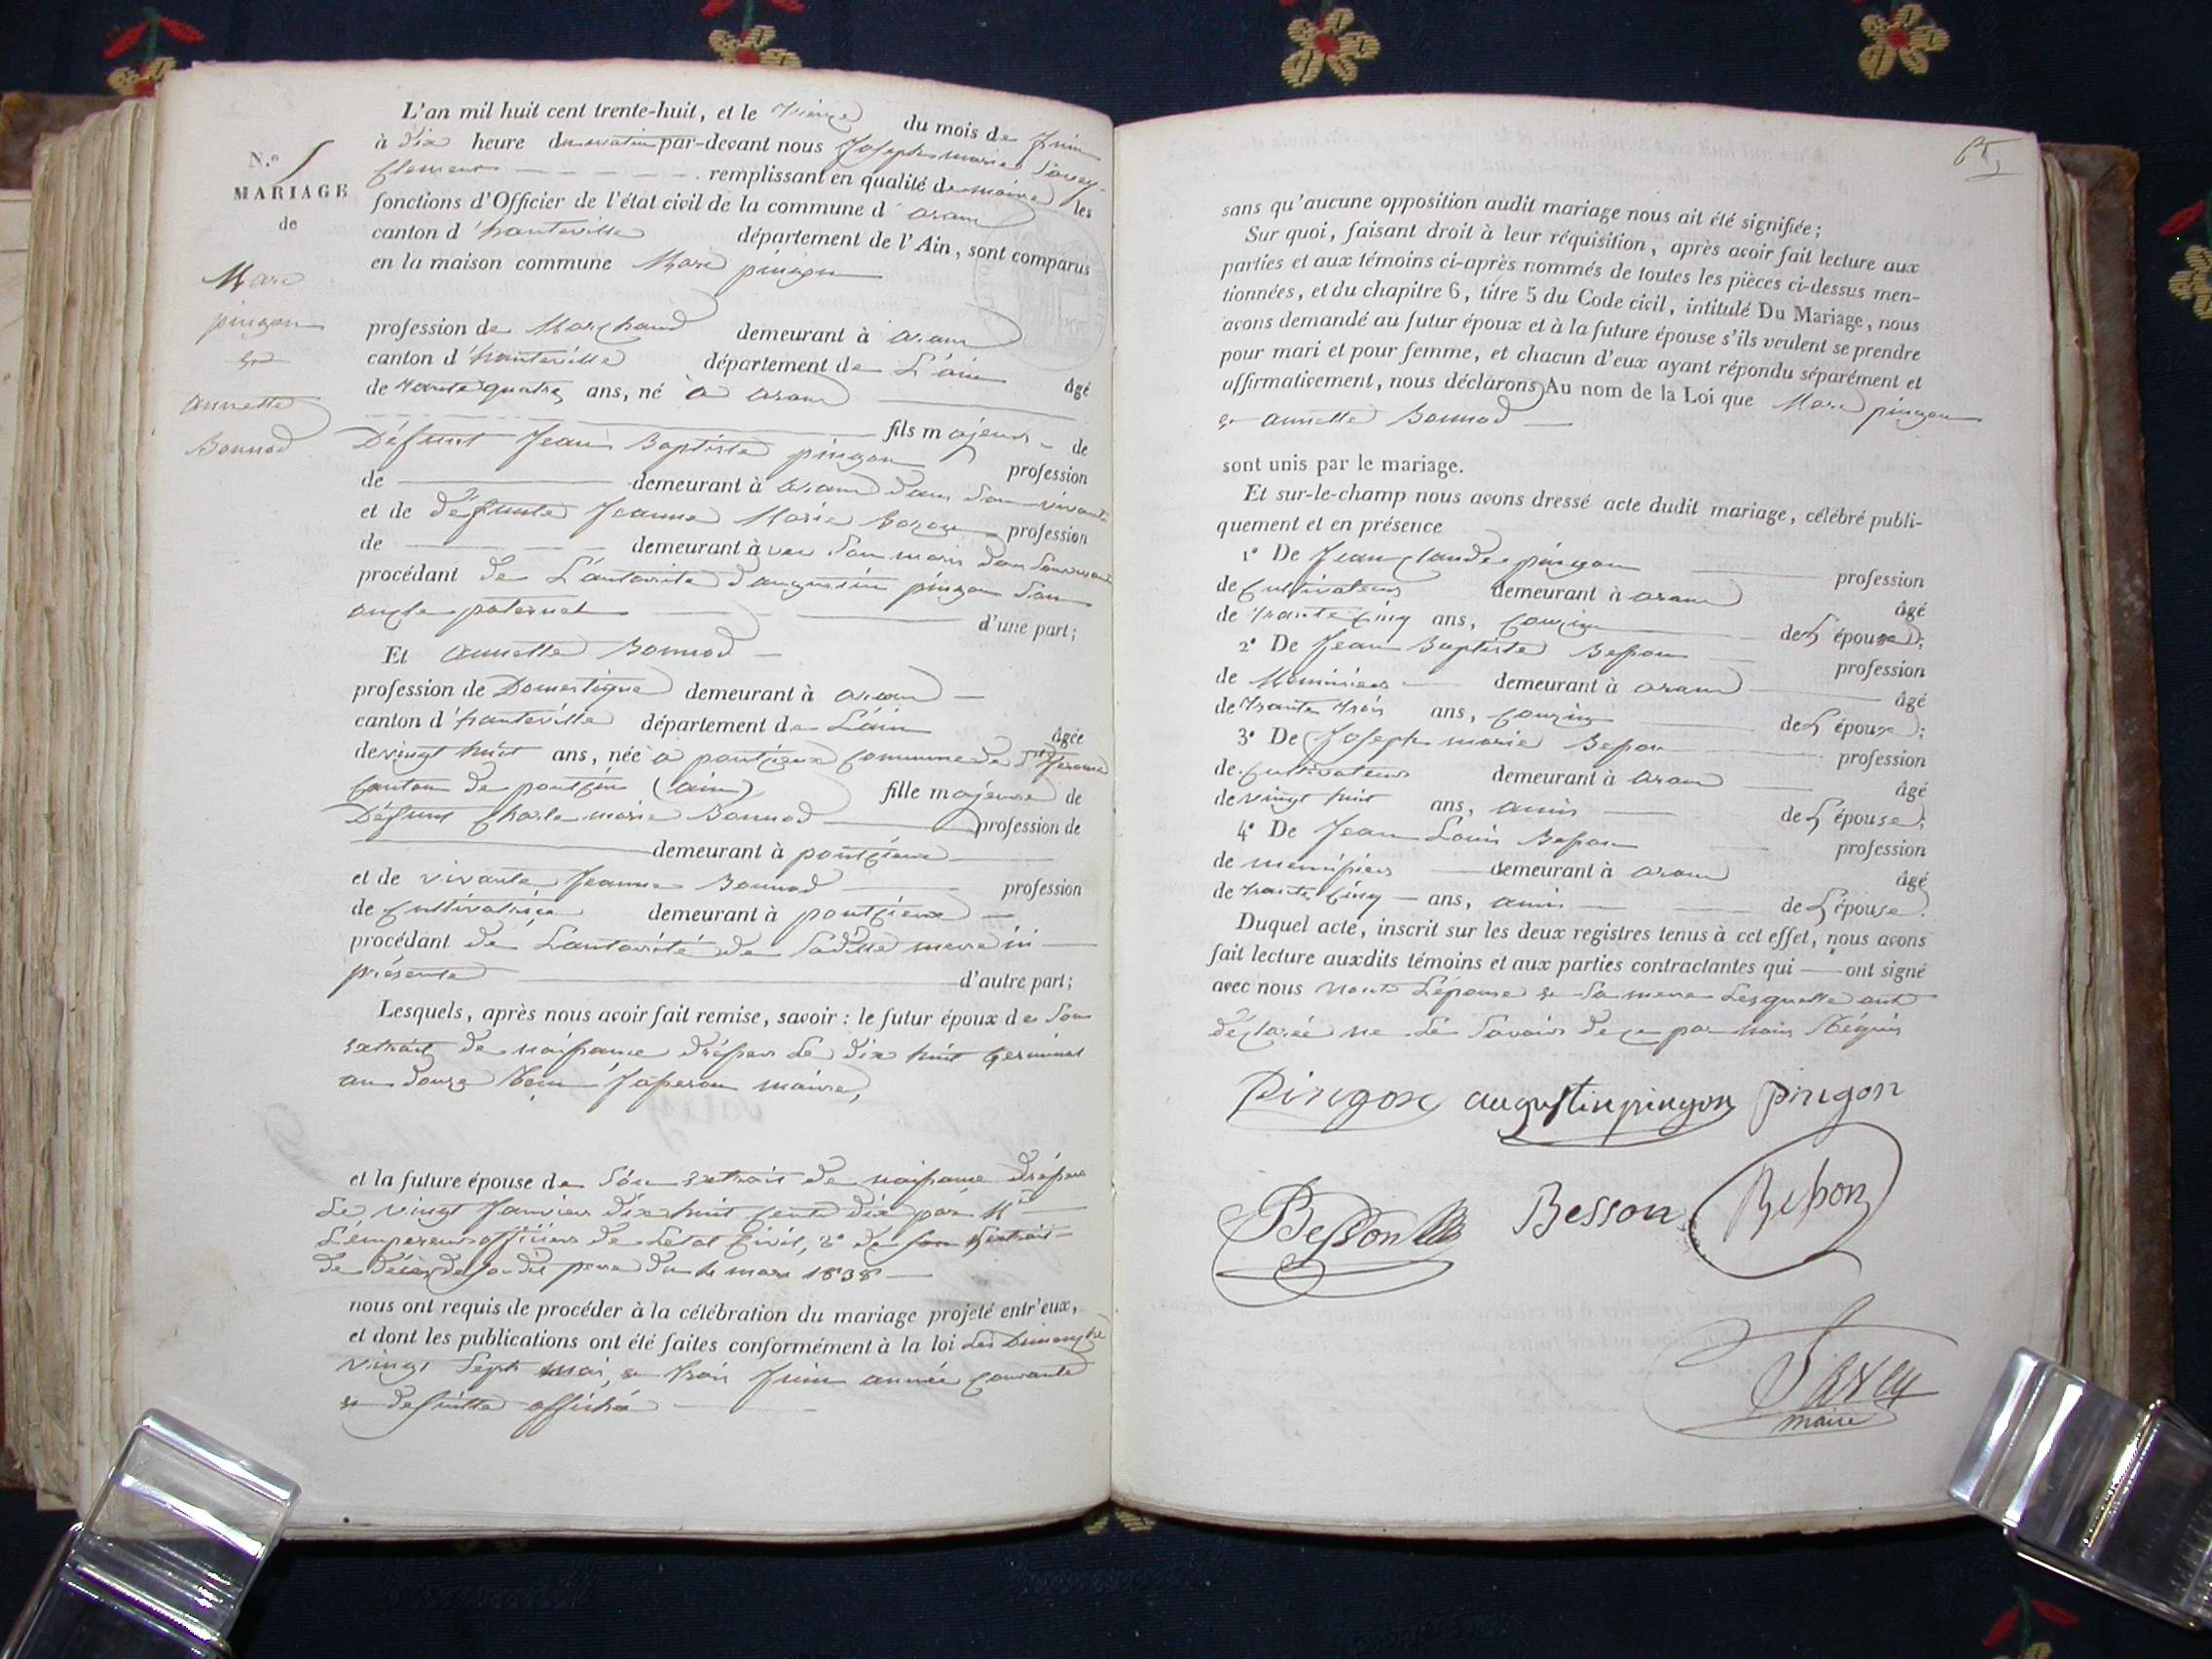 N.° 5
MARIAGE
de
Marc
pingon
et
annette
Bonnod
L'an mil huit cent trente-huit, et le du mois de Juin
à dix heure du matin par-devant nous Joseph marie Savey
remplissant en qualité de maire les
fonctions d'Officier de l'état civil de la commune d' aran
canton d'hauteville département de l'Ain, sont comparus
en la maison commune Marc pingon
profession de Marchand demeurant à aran
canton d'hauteville département de L'ain âgé
de trante quatre ans, né à aran
fils majeur de
Défunt Jean Baptiste pingon profession
de demeurant à aran dans son vivant
et de défunte Jeanne Marie profession
de demeurant avec son maris dans son vivant
procédant de L'autorité d'augustin pingon son
oncle paternel d'une part;
Et annette Bonnod
profession de Domestique demeurant à aran
canton d'hauteville département de L'ain âgée
de vingt huit ans, née à pontcieux commune de St Jerome
canton de poncin (ain) fille majeure de
Défunt Charle marie Bonnod profession de
demeurant à pontcieux
et de vivante Jeanne Bonnod profession
de cultivatrice demeurant à pontcieux
procédant de L'autorité de sa dite mere ici
présente d'autre part;
Lesquels, après nous avoir fait remise, savoir : le futur époux de son
extrait de naissance dréssez le dix huit germinal
an douze maire,
et la future épouse de son extrait de naissance dréssez
Le vingt Janvier dix huit cent dix par Mr
L'empereur officier de Letat Civil, 2° de extrait
de décès de son dit pere du 4 mars 1838
nous ont requis de procéder à la célébration du mariage projeté entr'eux,
et dont les publications ont été faites conformément à la loi les Dimanche
vingt Sept mai, et trois Juin année courante
et de suitte affiché
65
sans qu'aucune opposition audit mariage nous ait été signifiée;
Sur quoi, faisant droit à leur réquisition, après avoir fait lecture aux
parties et aux témoins ci-après nommés de toutes les pièces ci-dessus men-
tionnées, et du chapitre 6, titre 5 du Code civil, intitulé Du Mariage, nous
avons demandé au futur époux et à la future épouse s'ils veulent se prendre
pour mari et pour femme, et chacun d'eux ayant répondu séparément et
affirmativement, nous déclarons Au nom de la Loi que Marc pingon
et annette Bonnod
sont unis par le mariage.
Et sur-le-champ nous avons dressé acte dudit mariage, célébré publi-
quement et en présence
1° De Jean claude pingon profession
de Cultivateur demeurant à aran âgé
de trante cinq ans, couzin de L'épouse;
2° De Jean Baptiste Besson profession
de Menuisier demeurant à aran âgé
de trante trois ans, couzin de L'épouse;
3° De Joseph marie Besson profession
de cultivateur demeurant à aran âgé
de vingt huit ans, amis de L'épouse;
4° De Jean Louis Besson profession
de menuisier demeurant à aran âgé
de trante cinq ans, amis de L'épouse.
Duquel acte, inscrit sur les deux registres tenus à cet effet, nous avons
fait lecture auxdits témoins et aux parties contractantes qui ont signé
avec nous L'épouse et sa mere Lesquelle ont
déclarée ne Le Savoir de ce par nous réquis
Pingon augustin pingon pingon
Besson Besson Besson
Savey
maire